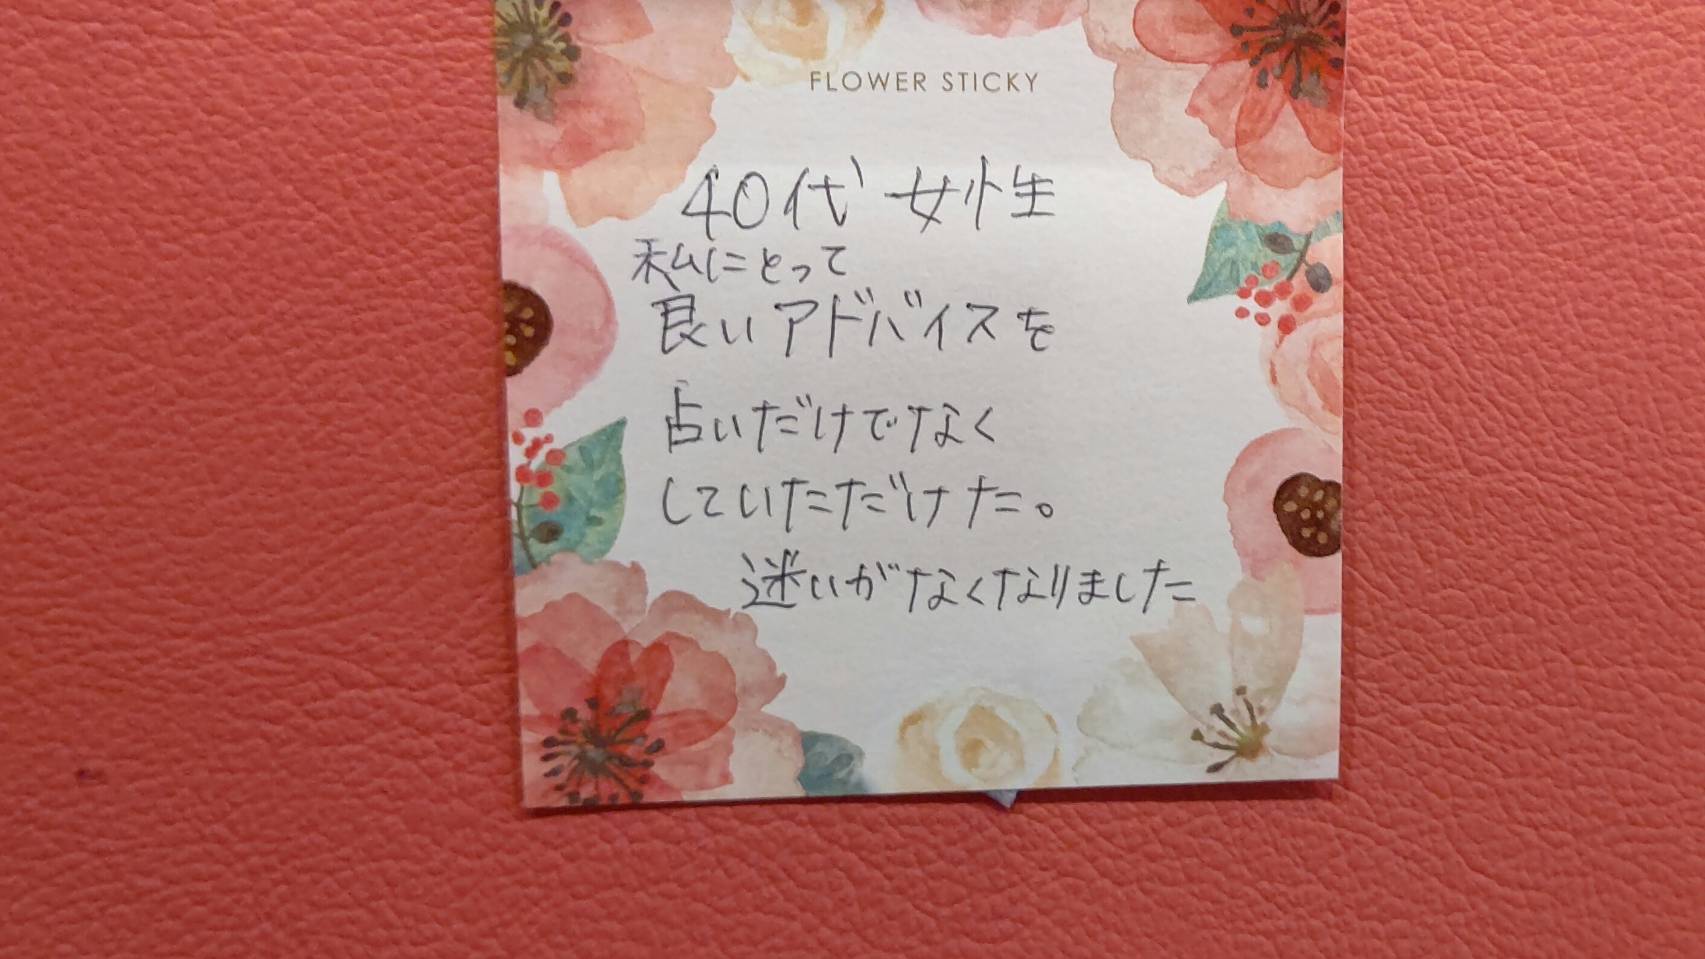 FLOWER STICKY
40代 女性
私にとって
良いアドバイスを
占いだけでなく
していただけた。
迷いがなくなりました